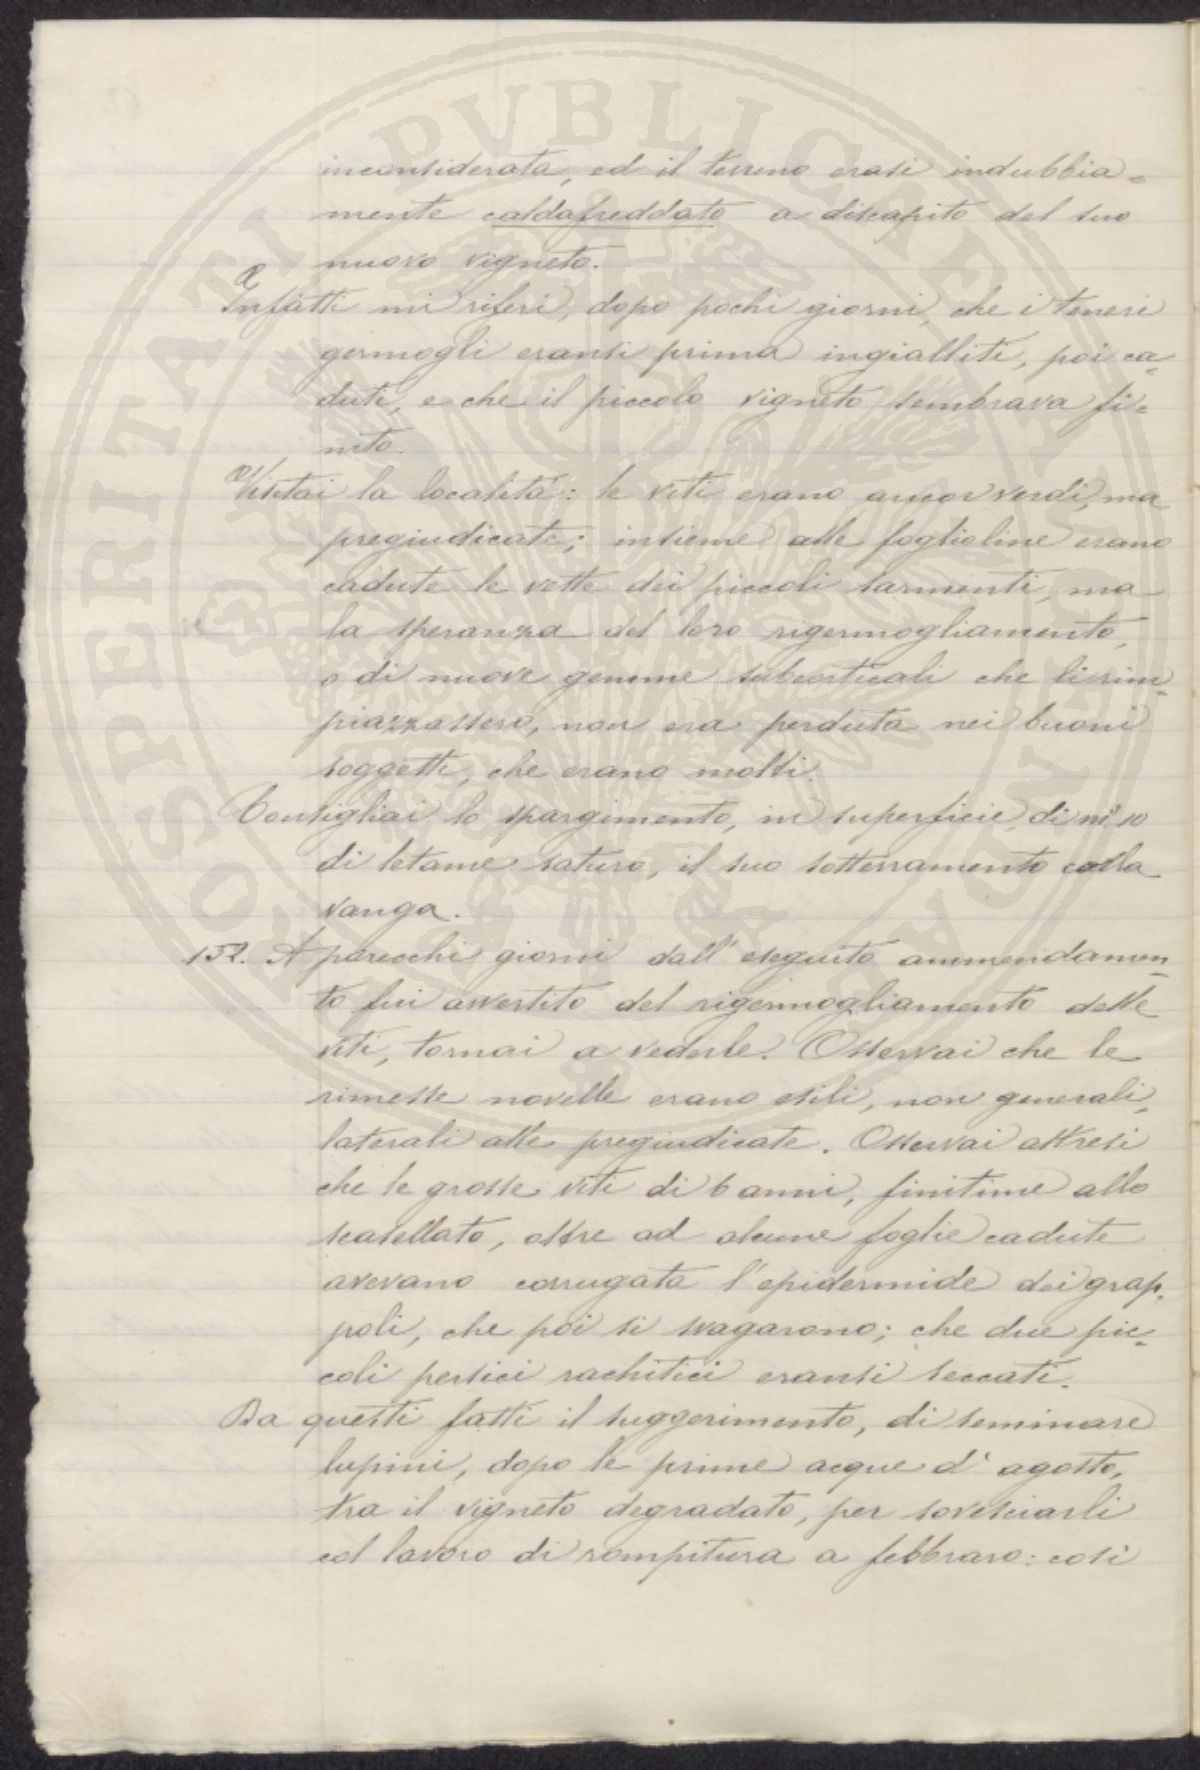 inconsiderata, ed il terreno erasi indubbia=
mente caldafreddato a discapito del suo
nuovo vigneto.
Infatti mi riferì, dopo pochi giorni, che i teneri
germogli eransi prima ingialliti, poi ca=
duti, e che il piccolo vigneto sembrava fi=
nito.
Visitai la località: le viti erano ancor verdi, ma
pregiudicate; insieme alle foglioline erano
cadute le vette dei piccoli sarmenti, ma
la speranza del loro rigermogliamento,
o di nuove gemme subcorticali che li rim=
piazzassero, non era perduta nei buoni
soggetti, che erano molti.
Consigliai lo spargimento, in superficie, di m.³ 10
di letame saturo, il suo sotterramento colla
vanga.
152. A parecchi giorni dall'eseguito ammendamen=
to fui avvertito del rigermogliamento delle
viti, tornai a vederle. Osservai che le
rimesse novelle erano esili, non generali,
laterali alle pregiudicate. Osservai altresì
che le grosse viti di 6 anni, finitime allo
scasellato, oltre ad alcune foglie cadute
avevano corrugata l'epidermide dei grap=
poli, che poi si svagarono; che due pic=
coli persici rachitici eransi seccati.
Da questi fatti il suggerimento, di seminare
lupini, dopo le prime acque d'agosto,
tra il vigneto degradato, per sovesciarli
col lavoro di rompitura a febbraro: così
PROSPERITATI PVBLICAE